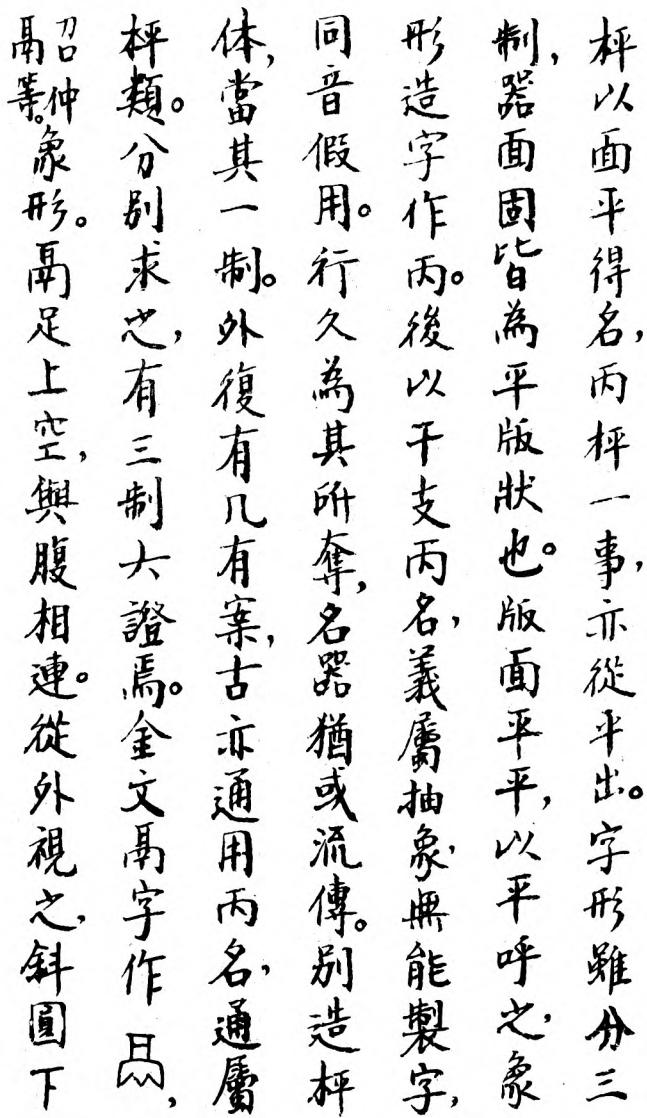 枰以面平得名，丙枰一事，亦從平出。字形雖分三
制，器面固皆為平版狀也。版面平平，以平呼之，象
形造字作丙。後以干支丙名，義屬抽象，無能製字，
同音假用。行久為其所奪，名器猶或流傳。別造枰
体，當其一制。外復有几有案，古亦通用丙名，通屬
枰類。分別求之，有三制大證焉。金文鬲字作，
召仲鬲等。象形。鬲足上空，與腹相連。從外視之，斜圓下